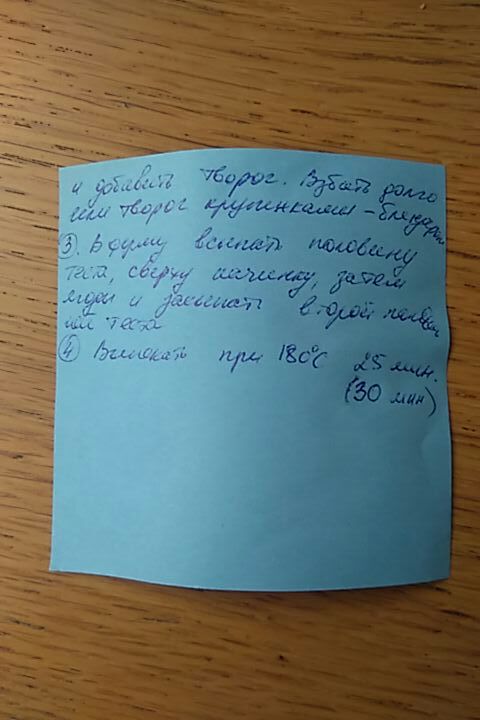 и добавить творог. Взбить долго
если творог крупинками - блендером
③. В форму всыпать половину
теста, сверху начинку, затем
ягоды и засыпать второй полови
ной теста
④ Выпекать при 180°С 25 мин.
(30 мин)